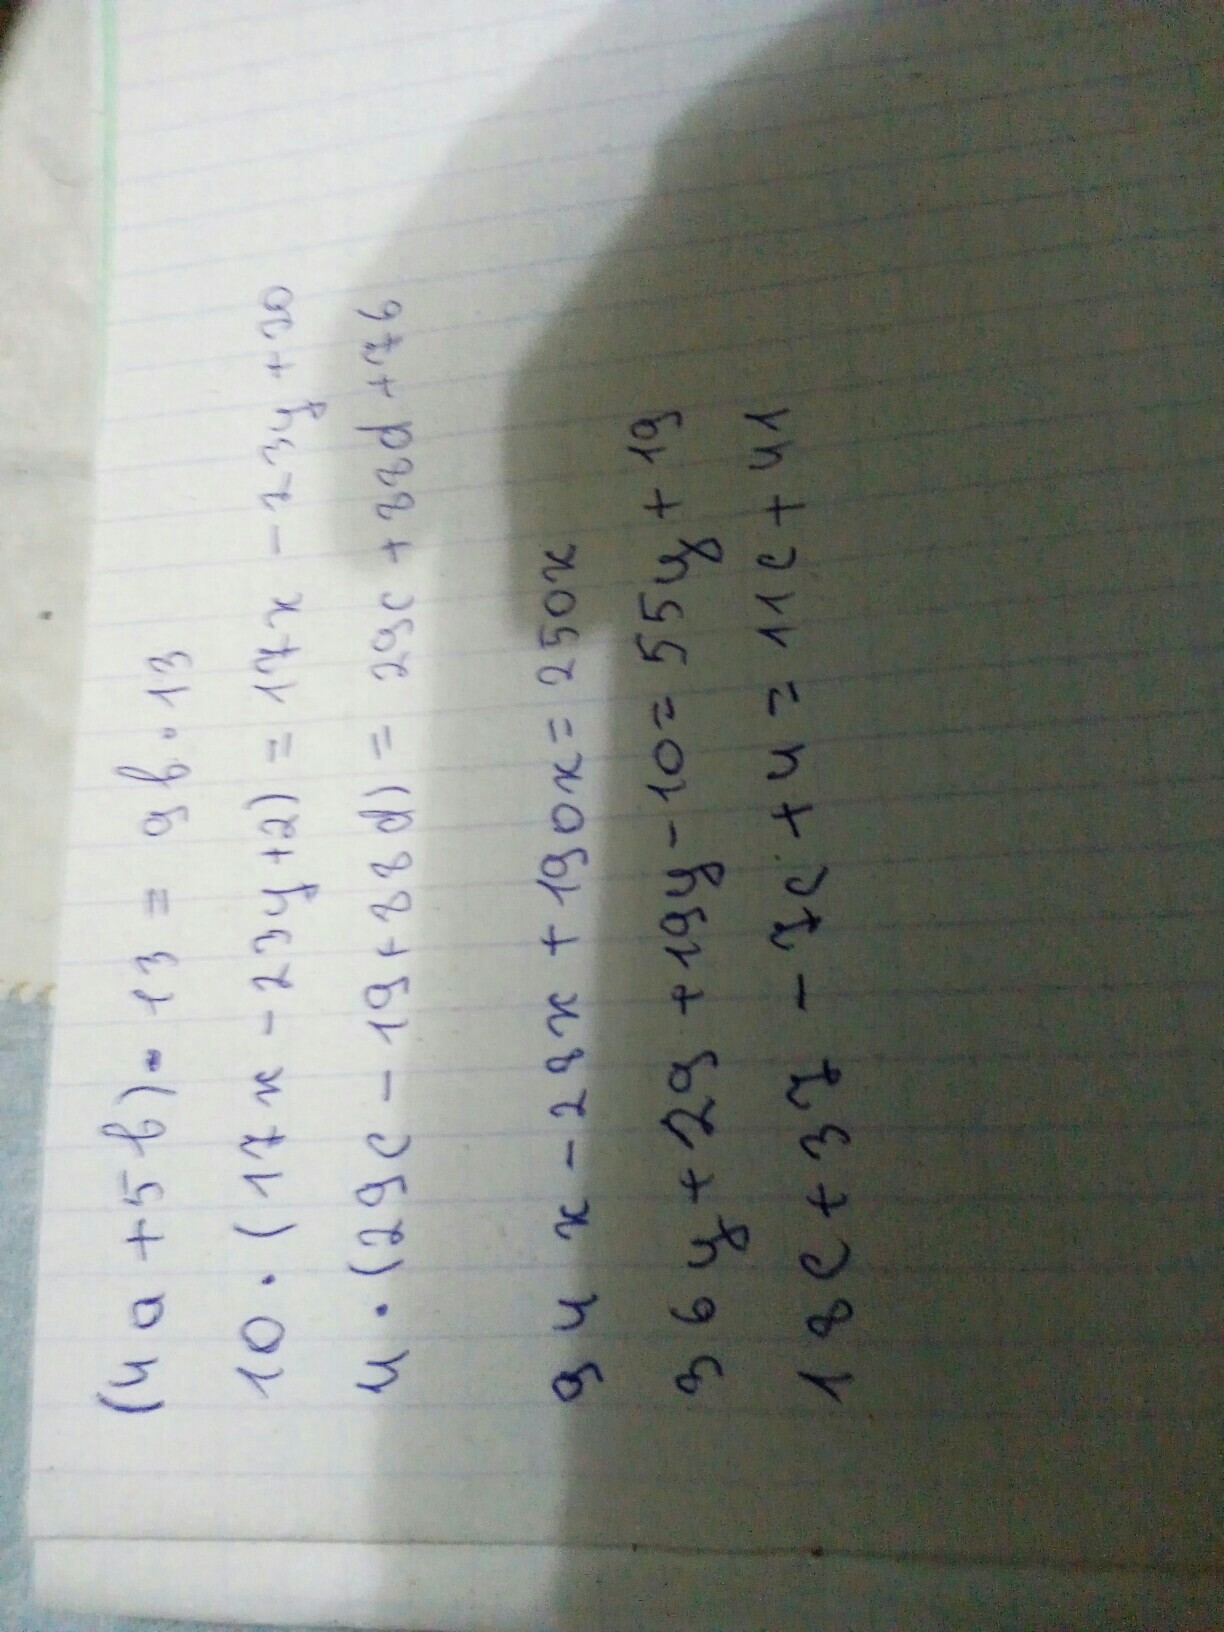 (4a+5b)•13=9b•13
10•(17x-23y+2)=17x-23y+20
4•(29c-19+88d)=29c+88d+76
94x-28x+190x=250x
36y+29+19y-10=55y+19
18c+37-7c+4=11c+41